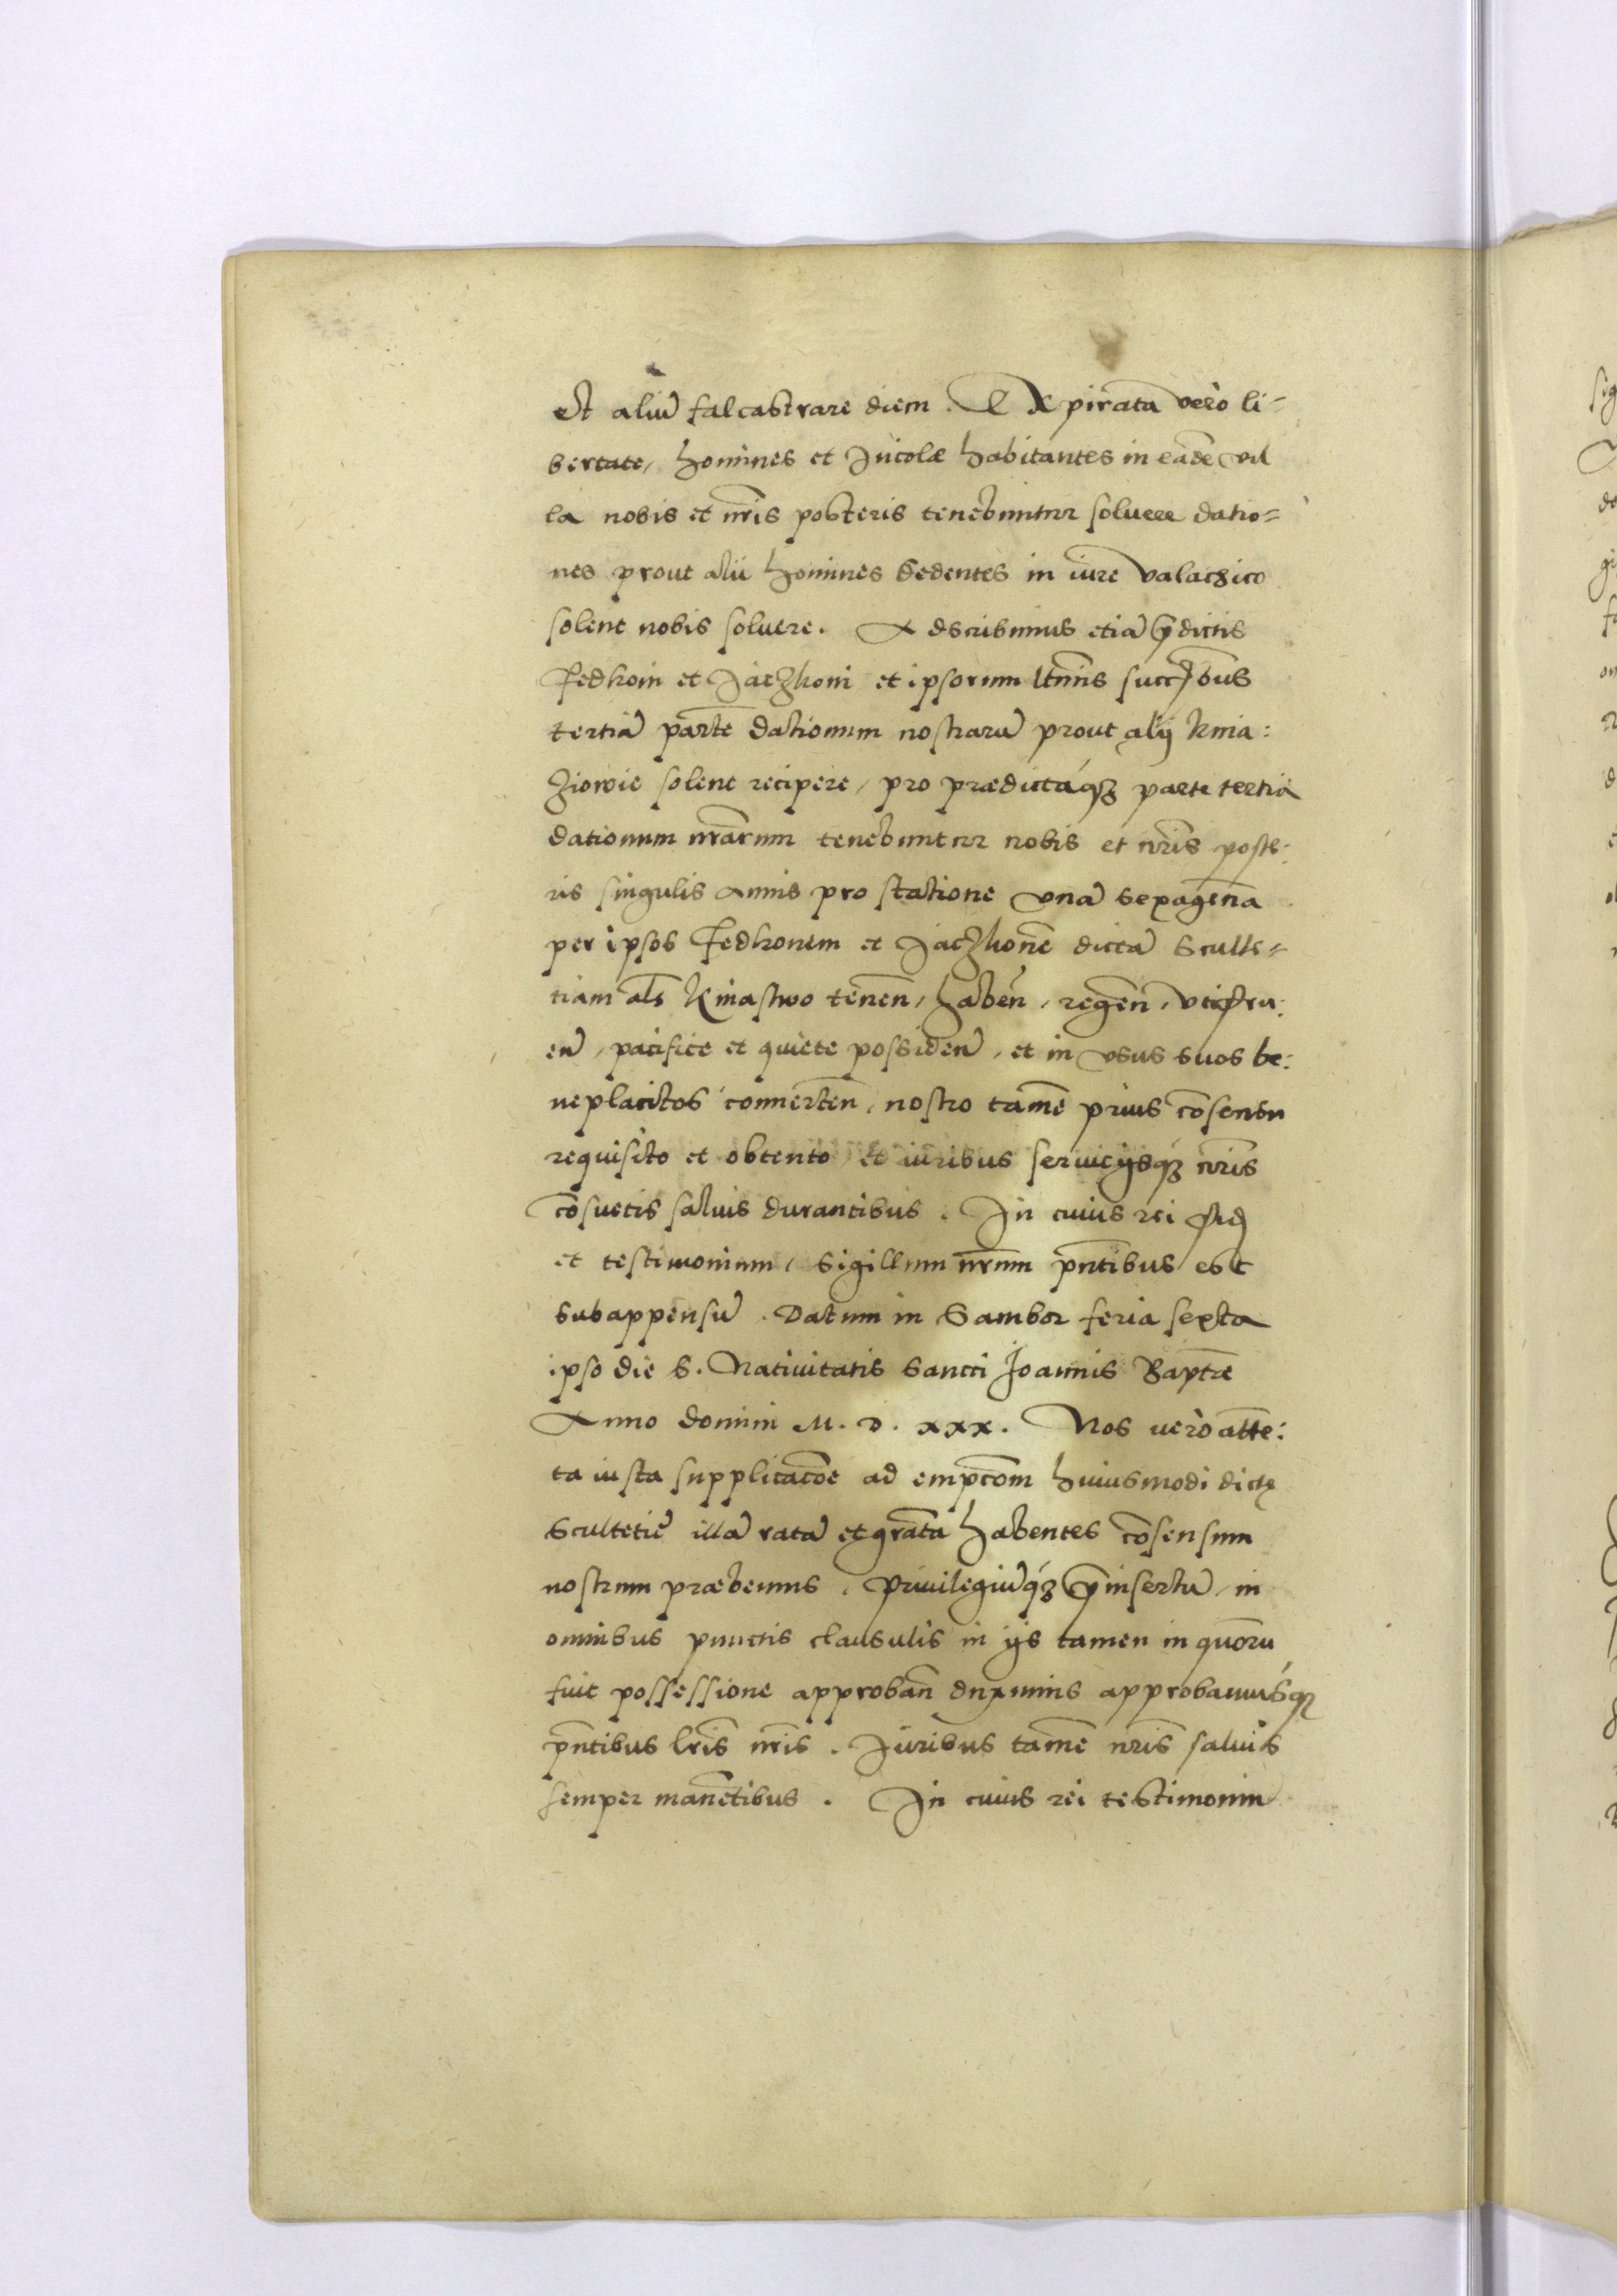 et aliũ falcastrare diem. EXpirata verò li=
bertate, homines et Incolæ habitantes in eadẽ vil
la nobis et nr̃is posteris tenebuntur soluere datio=
nes prout alii homines sedentes in iure valachico
solent nobis soluere. Adscribimus etiã p̃dictis
Fedkoni et Jaczkoni et ipsorum ltm̃is succ̃bus
tertiã partẽ dationum nostrarũ prout alij knia:
ziowie solent recipere, pro prædictáq3 parte tertia
dationum nr̃arum tenebuntur nobis et nr̃is poste:
ris singulis annis pro statione vnã sexagenã
per ipsos Fedkonem et Jaczkonẽ dictã Sculte=
tiam al̃s kniastwo tenen̄, haben̄, regen̄, vtifru:
en̄, pacifice et quiete possiden̄, et in vsus suos be:
neplacitos conuerten̄, nostro tamẽ prius cõsensu
requisito et obtento, et iuribus seruicijsq3 nr̃is
cõsuetis saluis durantibus. In cuius rei fid̃
et testimonium, sigillum nr̃um pn̄tibus est
subappensũ. Datum in Sambor feria sexta
ipso die S. Natiuitatis Sancti Joannis Baptæ
Anno domini M. D. xxx. Nos verò atte:
ta iusta supplicatõe ad emptõm huiusmodi dictę
Scultetię illã ratã et gratã habentes cõsensum
nostrum præbemus, priuilegiũq3 p̃insertũ, in
omnibus punctis clausulis in ijs tamen in quorũ
fuit possessione approban̄ duximus approbamusq3
pn̄tibus lr̃is nr̃is. Juribus tamẽ nr̃is saluis
semper manẽtibus. In cuius rei testimoniũ